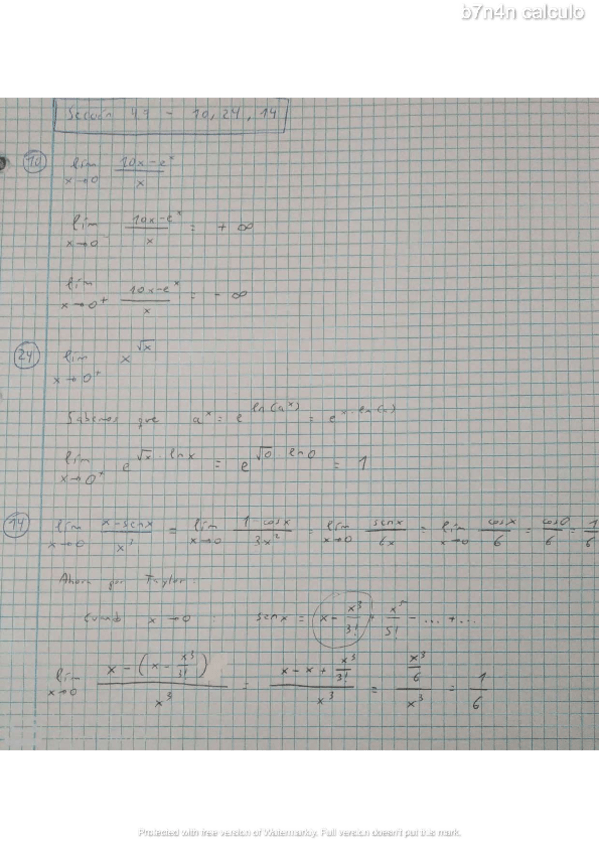 b7n4n calculo
Sección 47 - 10, 24, 14
10 lim x→0 (10x-e^x)/x
lim x→0⁻ (10x-e^x)/x = +∞
lim x→0⁺ (10x-e^x)/x = -∞
24 lim x→0⁺ x^√x
Sabemos que a^x = e^ln(a^x) = e^x·ln(a)
lim x→0⁺ e^√x·lnx = e^√0·ln0 = 1
14 lim x→0 (x-senx)/x³ = lim x→0 (1-cosx)/3x² = lim x→0 senx/6x = lim x→0 cosx/6 = cos0/6 = 1/6
Ahora por Taylor:
Cuando x→0 : senx = x - x³/3! + x⁵/5! - ... + ...
lim x→0 (x-(x-x³/3!))/x³ = (x-x+x³/3!)/x³ = (x³/6)/x³ = 1/6
Protected with free version of Watermarkly. Full version doesn't put this mark.